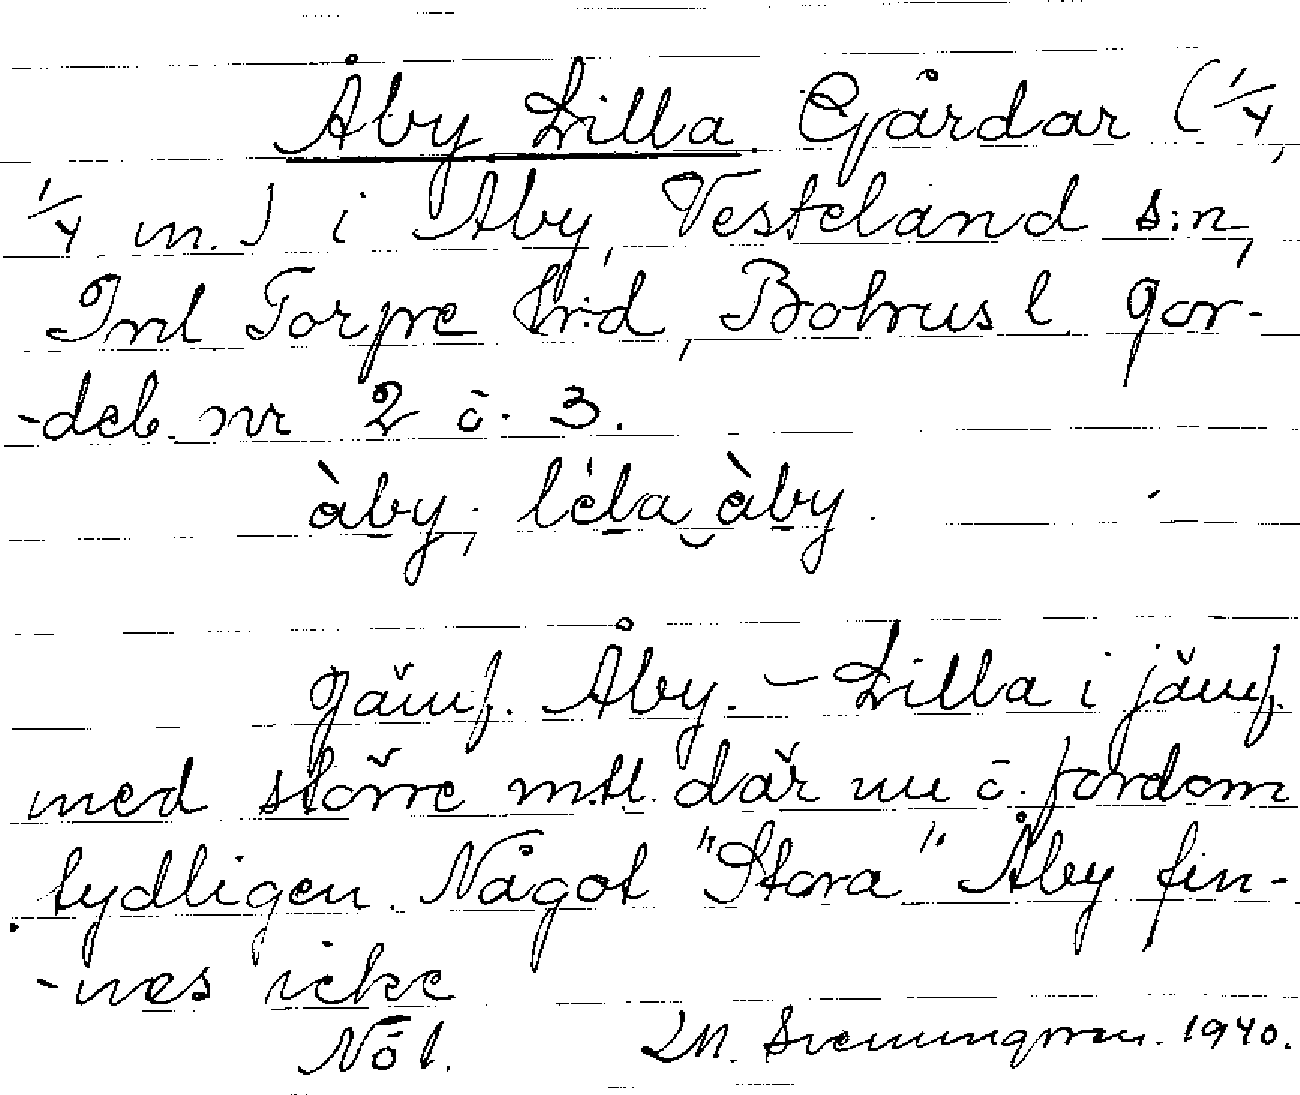 Åby Lilla. Gårdar (1/4,
1/4 m.) i Åby, Vesteland s:n,
Inl Torpe hr:d, Bohusl. jor-
-deb. nr 2 o. 3.
àby, lèla àby.
Jämf. Åby. - Lilla i jämf.
med större mtl. där nu o. fordom
tydligen. Något "Stora" Åby fin-
-nes icke
Nöl. 1940.